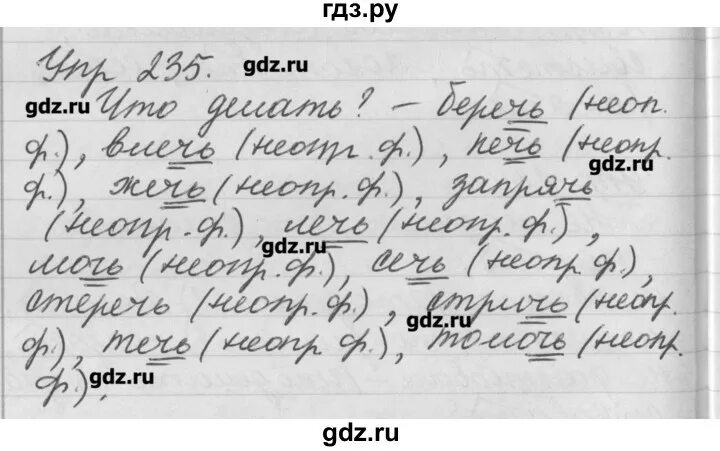 гдз.ру
Упр 235. gdz.ru
gdz.ru Что делать? – беречь (неоп.
ф.), влечь (неопр. ф.), печь (неопр.
gdz.ru
ф.), жечь (неопр. ф.), запрячь
(неопр. ф.), лечь (неопр. ф.),
gdz.ru
мочь (неопр. ф.), сечь (неопр. ф.),
стеречь (неопр. ф.), стричь (неопр.
gdz.ru
ф.), течь (неопр. ф.), толочь (неопр.
ф.). gdz.ru
gdz.ru